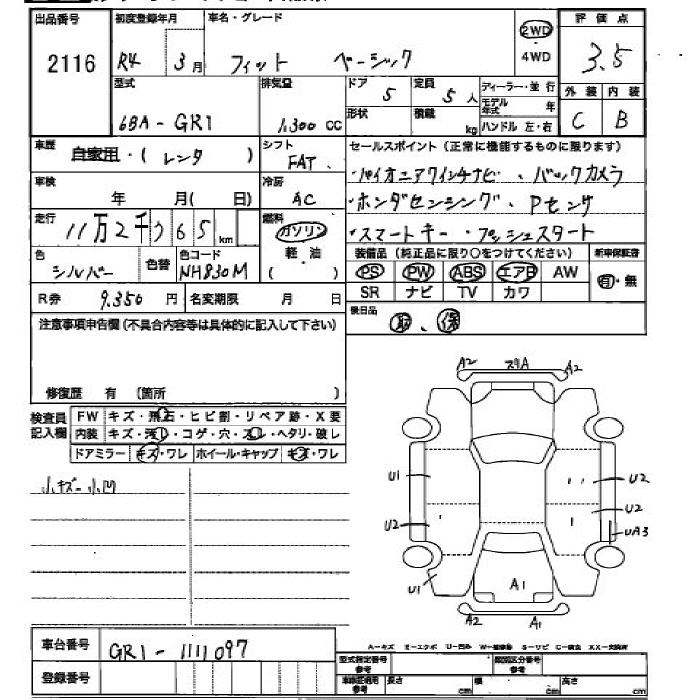 出品番号 初度登録年月 車名・グレード 評価点
2116 R4 3月 フィット ベーシック 2WD 3.5
4WD
型式 排気量 ドア 5 定員 5人 ディーラー・並行 外装 内装
モデル年式 年
6BA-GR1 1,300cc 形状 積載 kg ハンドル 左・右 C B
車歴 自家用・(レンタ) シフト FAT セールスポイント(正常に機能するものに限ります)
・パイオニア9インチナビ、バックカメラ
車検 年 月(日) 冷房 AC
・ホンダセンシング、Pセンサ
走行 11万2千765km 燃料 ガソリン
・スマートキー・プッシュスタート
軽油
色 シルバー 色替 色コード NH830M ( ) 装備品(純正品に限り○をつけてください) 新車保証書
PS PW ABS エアB AW 有・無
R券 9,350円 名変期限 月 日 SR ナビ TV カワ
注意事項申告欄(不具合内容等は具体的に記入して下さい) 後日品 取、保
修復歴 有 〔箇所 〕
検査員記入欄 FW キズ・飛石・ヒビ割・リペア跡・X要
内装 キズ・汚レ・コゲ・穴・スレ・ヘタリ・破レ
ドアミラー キズ・ワレ ホイール・キャップ キズ・ワレ
小キズ小凹
A2 スリA A2
U1 U2
U2 U2
UA3
U1 A1
A2 A1
車台番号 GR1-1111097
A-キズ E-エクボ U-凹み
登録番号
型式指定番号参考 類別区分番号参考
車検証記載参考 長さ cm 幅 cm 高さ cm